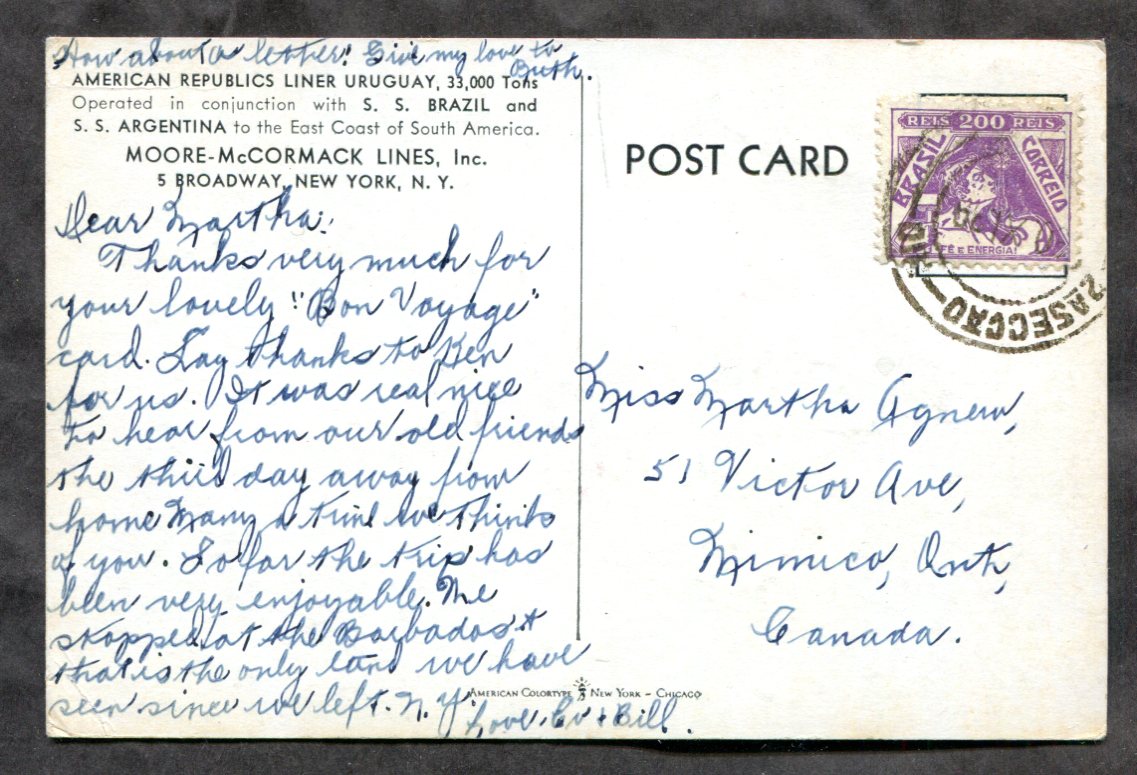 How about a letter! Give my love to
Buth.
AMERICAN REPUBLICS LINER URUGUAY, 33,000 Tons
Operated in conjunction with S. S. BRAZIL and
S. S. ARGENTINA to the East Coast of South America.
MOORE-McCORMACK LINES, Inc.
5 BROADWAY, NEW YORK, N. Y.
Dear Martha:
Thanks very much for
your lovely "Bon Voyage"
card. Say thanks to Ken
for us. It was real nice
to hear from our old friends
the third day away from
home Many a time we thinks
of you. So far the trip has
been very enjoyable. We
stopped at the Barbados &
that is the only land we have
seen since we left. N.Y.
Love. Ev & Bill.
AMERICAN COLORTYPE NEW YORK - CHICAGO
POST CARD
REIS 200 REIS
BRASIL CORREIO
FÉ E ENERGIA!
2A SECCÃO
Miss Martha Agnew,
51 Victor Ave,
Mimico, Ont,
Canada.